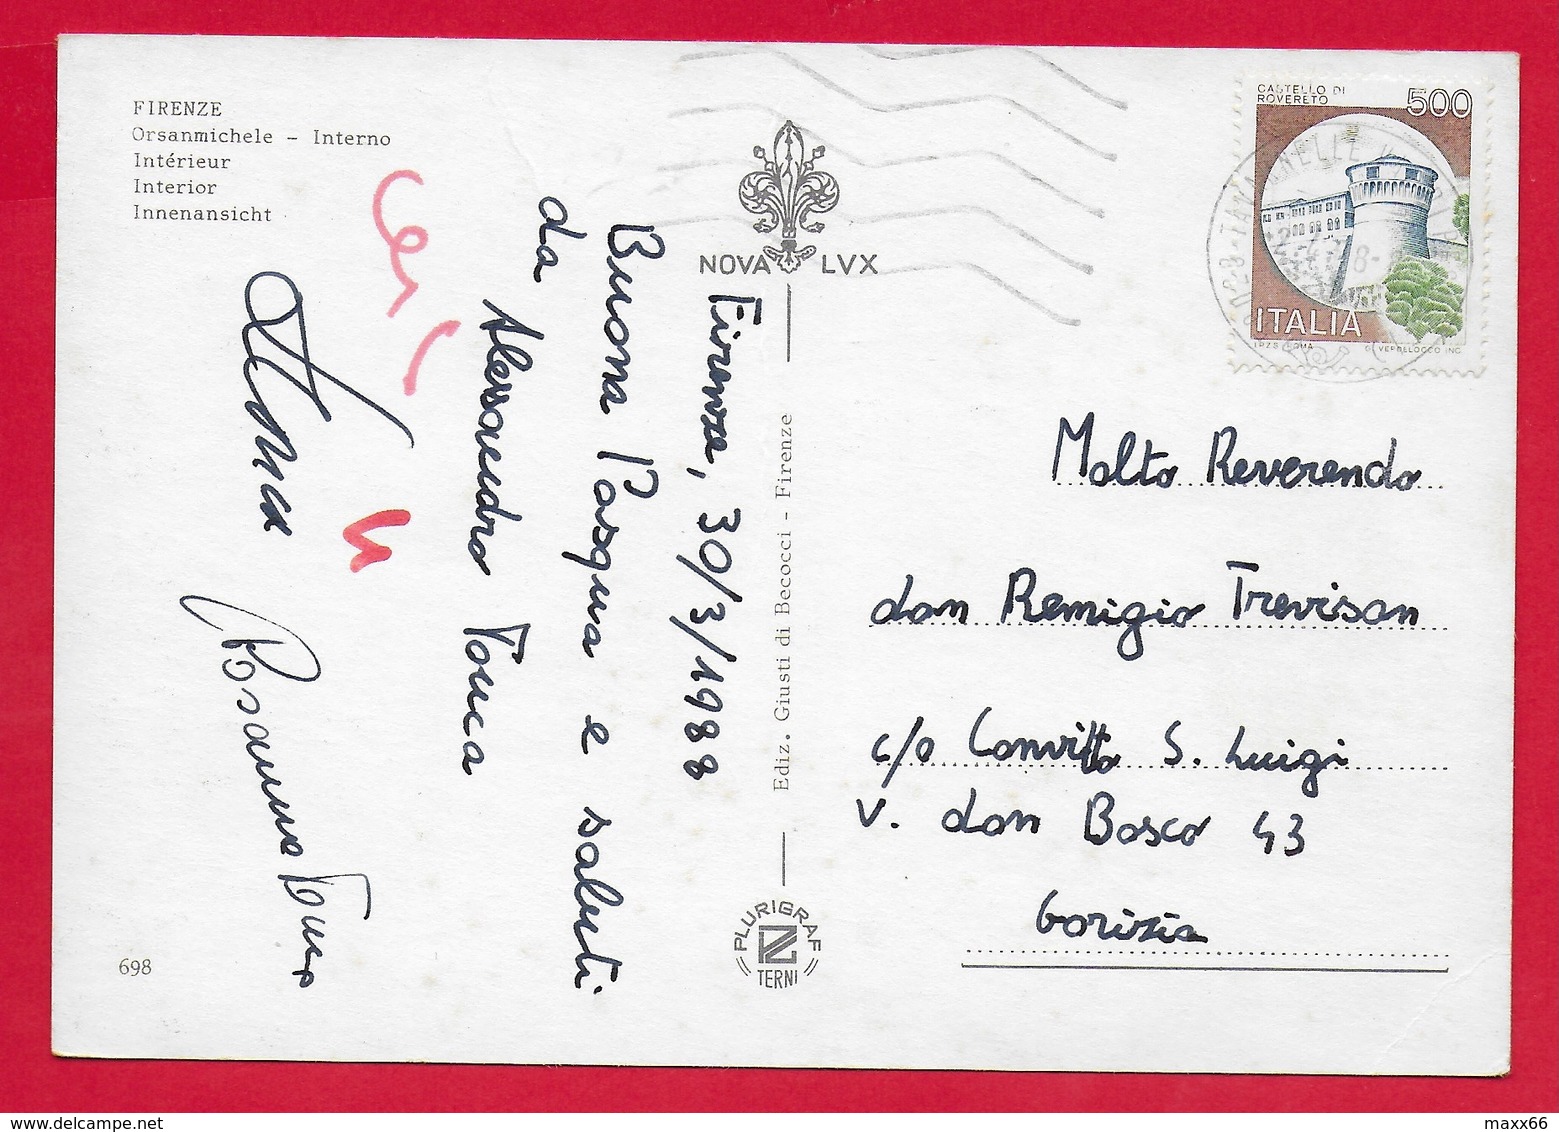 FIRENZE
Orsanmichele - Interno
Intérieur
Interior
Innenansicht
NOVA LVX
Firenze, 30/3/1988
Buona Pasqua e saluti
da Alessandro
Rosanna
698
Ediz. Giusti di Becocci - Firenze
PLURIGRAF
TERNI
CASTELLO DI
ROVERETO
500
ITALIA
I.P.Z.S. ROMA
VERDELOCCO INC.
Molto Reverendo
don Remigio Trevisan
c/o Convitto S. Luigi
V. don Bosco 43
Gorizia
www.delcampe.net
maxx66